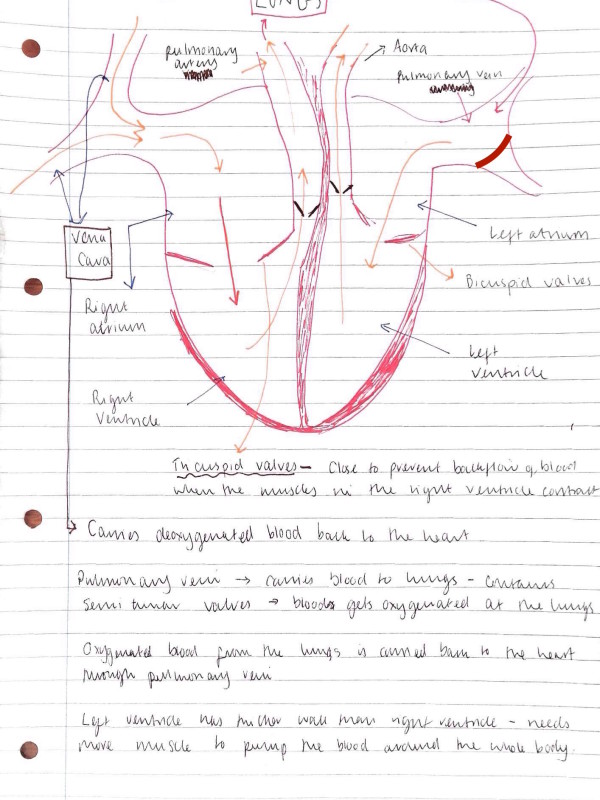 LUNGS
pulmonary
artery
Aorta
Pulmonary vein
Vena
Cava
Left atrium
Bicuspid valves
Right
atrium
Left
ventricle
Right
Ventricle
Tricuspid valves - Close to prevent backflow of blood
when the muscles in the right ventricle contract
Carries deoxygenated blood back to the heart
Pulmonary vein → carries blood to lungs - contains
Semi lunar valves → blood gets oxygenated at the lungs
Oxygenated blood from the lungs is carried back to the heart
through pulmonary vein
Left ventricle has thicker wall than right ventricle - needs
more muscle to pump the blood around the whole body.